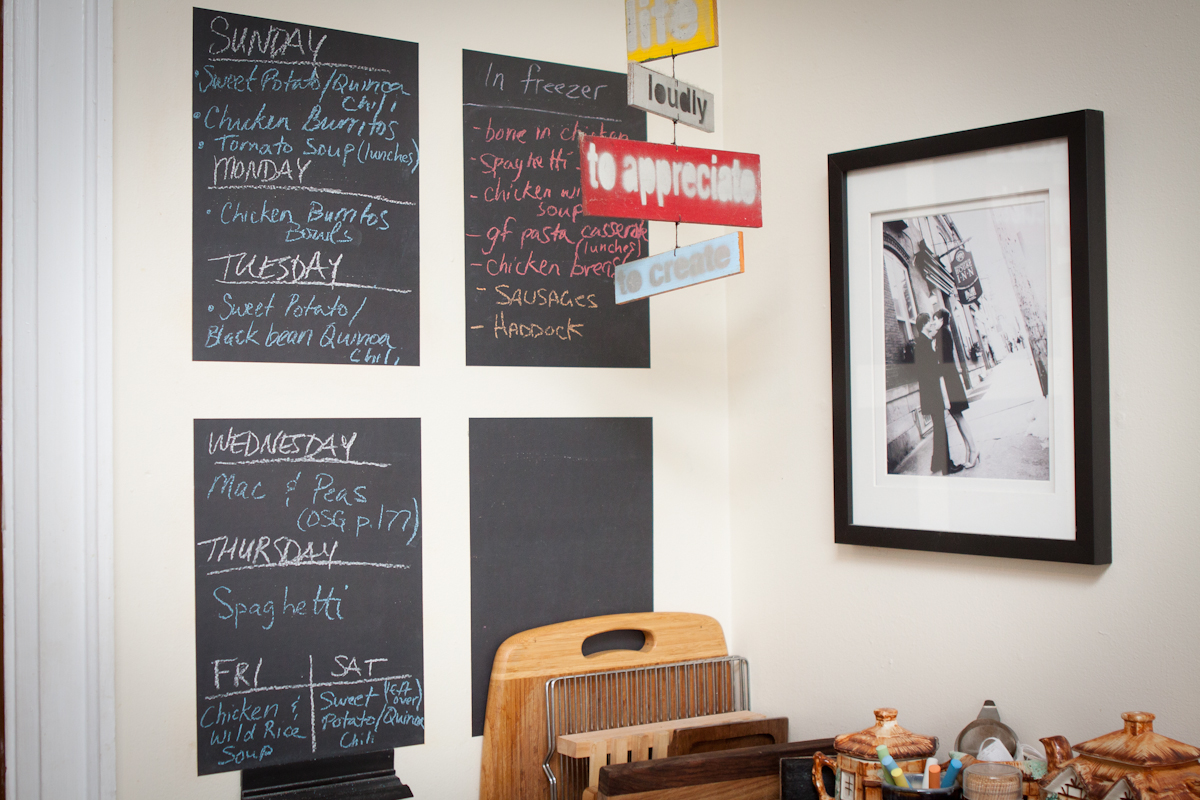 SUNDAY
• Sweet Potato/Quinoa
Chili
• Chicken Burritos
• Tomato Soup (lunches)
MONDAY
• Chicken Burritos
Bowls
TUESDAY
• Sweet Potato/
Black bean Quinoa
Chili
WEDNESDAY
Mac & Peas
(OSG p.177)
THURSDAY
Spaghetti
FRI
Chicken &
Wild Rice
Soup
SAT
Sweet (left
over)
Potato/Quinoa
Chili
In freezer
- bone in chicken
- Spaghetti
- chicken wil
soup
- gf pasta casserole
(lunches)
- chicken breas
- SAUSAGES
- HADDOCK
life!
loudly
to appreciate
to create
INN